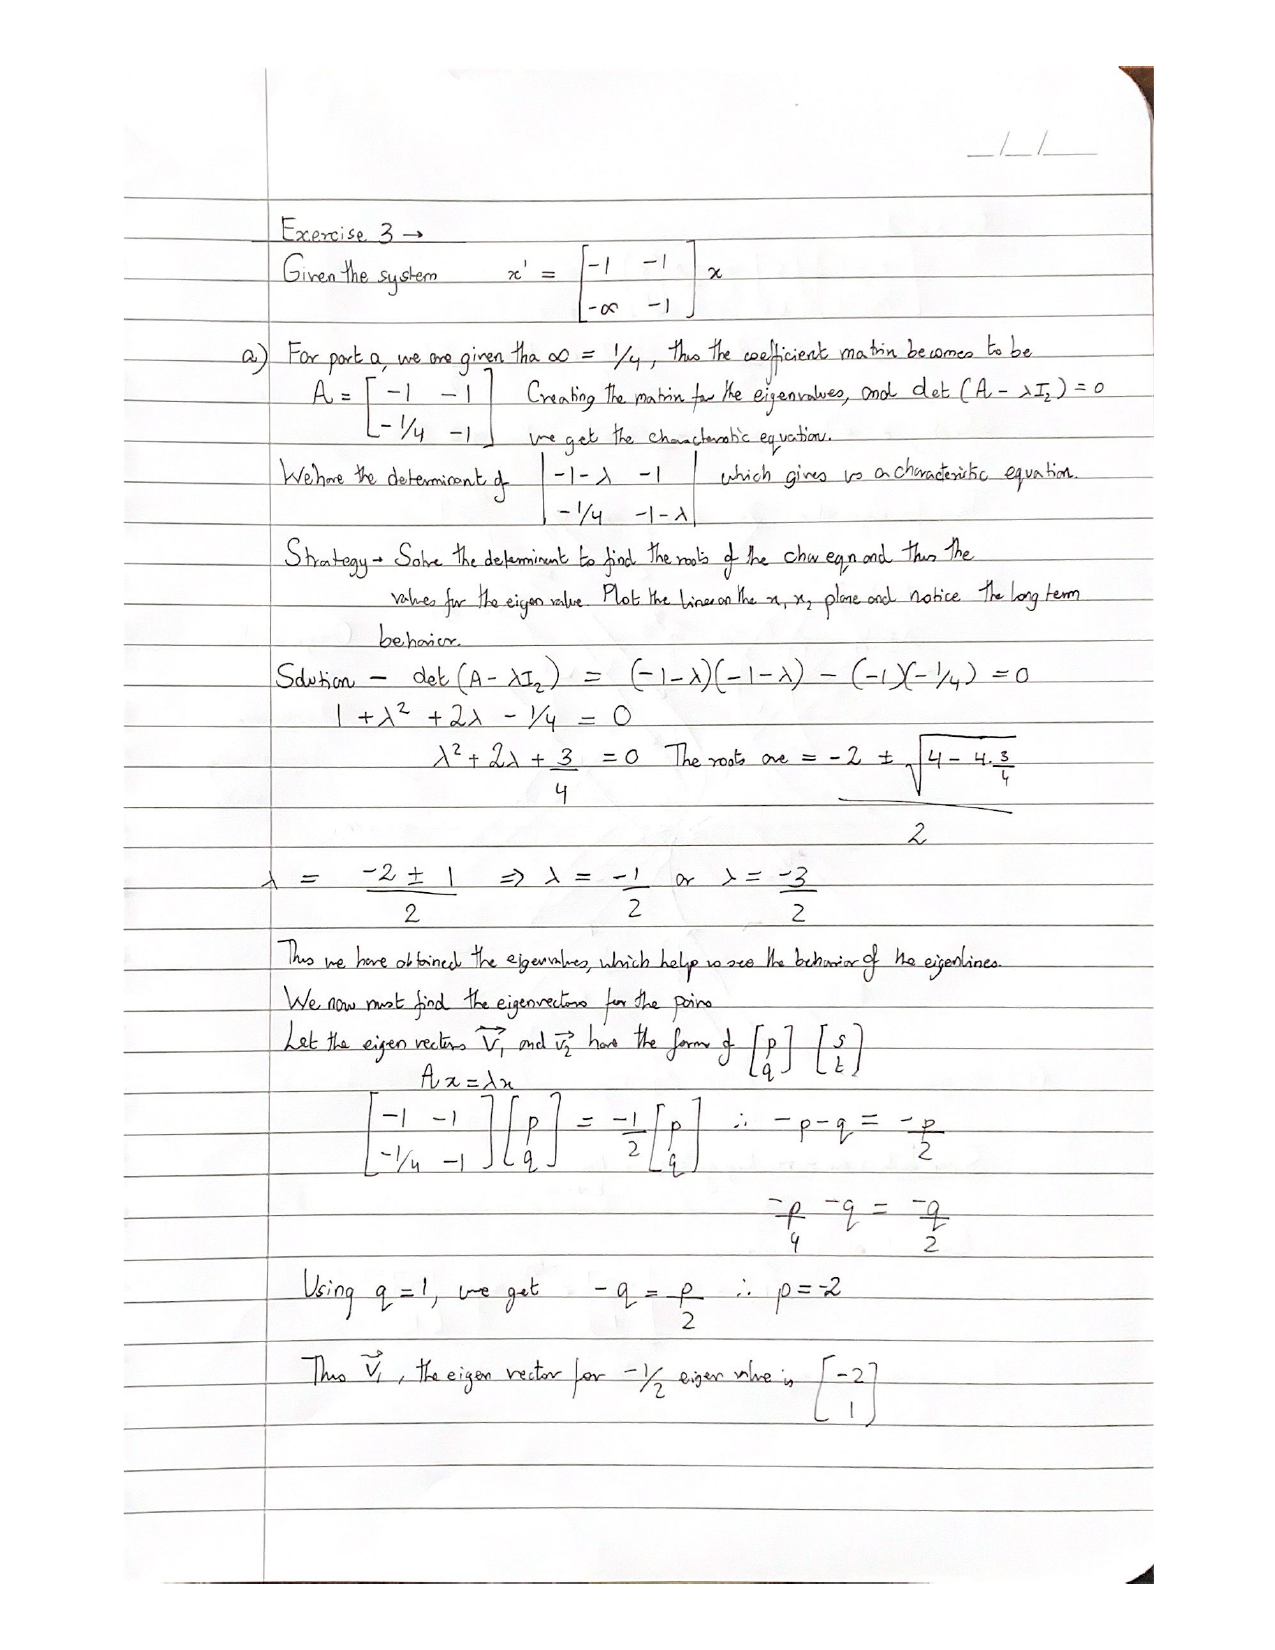 _/_/_
Exercise 3 →
Given the system x' = [-1 -1; -∝ -1] x
a) For part a, we are given tha ∝ = 1/4, thus the coefficient matrin becomes to be
A = [-1 -1; -1/4 -1] Creating the matrin for the eigenvalues, and det (A - λI₂) = 0
we get the characteristic equation.
We have the determinant of |-1-λ -1; -1/4 -1-λ| which gives us a characteristic equation.
Strategy → Solve the determinent to find the roots of the char eqn and thus the
values for the eigen value. Plot the lines on the x₁ x₂ plane and notice the long term
behavior.
Solution - det (A - λI₂) = (-1-λ)(-1-λ) - (-1)(-1/4) = 0
1 + λ² + 2λ - 1/4 = 0
λ² + 2λ + 3/4 = 0 The roots are = (-2 ± √(4 - 4.3/4))/2
λ = (-2 ± 1)/2 ⇒ λ = -1/2 or λ = -3/2
Thus we have obtained the eigenvalues, which help us see the behavior of the eigenlines.
We now must find the eigenvectors for the pairs
Let the eigen vectors V⃗₁ and v⃗₂ have the form of [p; q] [s; t]
Ax = λx
[-1 -1; -1/4 -1] [p; q] = -1/2 [p; q] ∴ -p-q = -p/2
-p/4 -q = -q/2
Using q = 1, we get -q = p/2 ∴ p = -2
Thus V⃗₁, the eigen vector for -1/2 eigen value is [-2; 1]